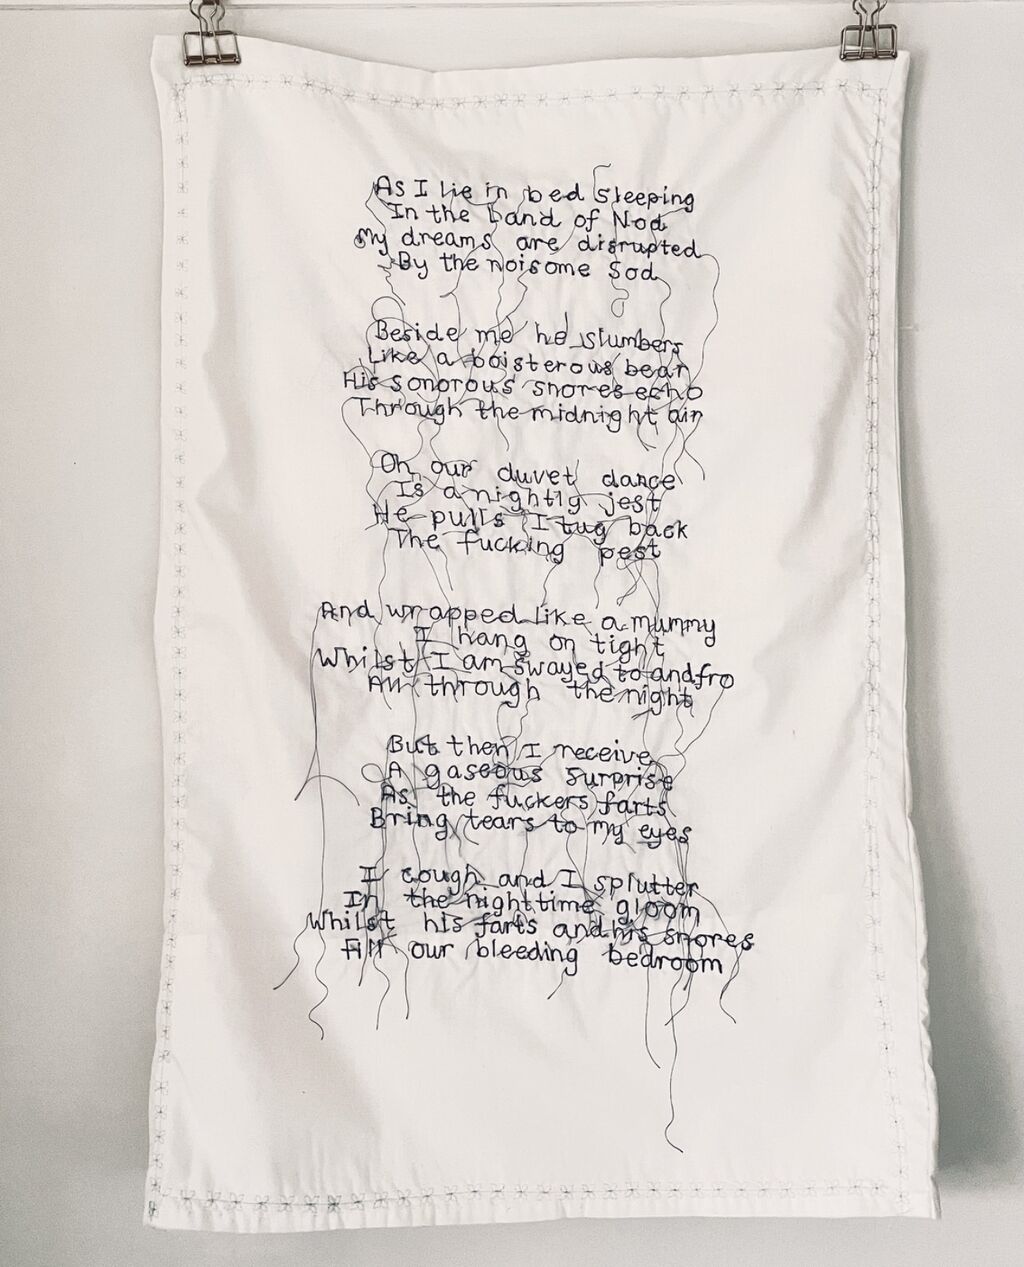 As I lie in bed sleeping
In the Land of Nod
My dreams are disrupted
By the noisome Sod
Beside me he slumbers
Like a boisterous bear
His sonorous snores echo
Through the midnight air
Oh our duvet dance
Is a nightly jest
He pulls I tug back
The fucking pest
And wrapped like a mummy
I hang on tight
Whilst I am swayed to and fro
All through the night
But then I receive
A gaseous surprise
As the fuckers farts
Bring tears to my eyes
I cough and I splutter
In the nighttime gloom
Whilst his farts and his snores
Fill our bleeding bedroom